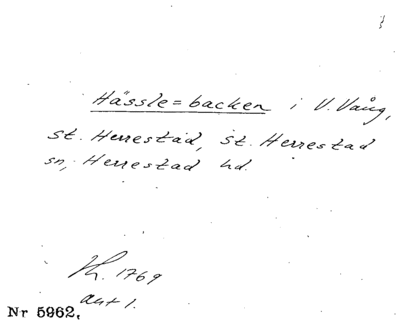 Hässle=backen i V. Vång,
st. Herrestad, st. Herrestad
sn, Herrestad hd.
Kh. 1769
akt 1.
Nr 5962.